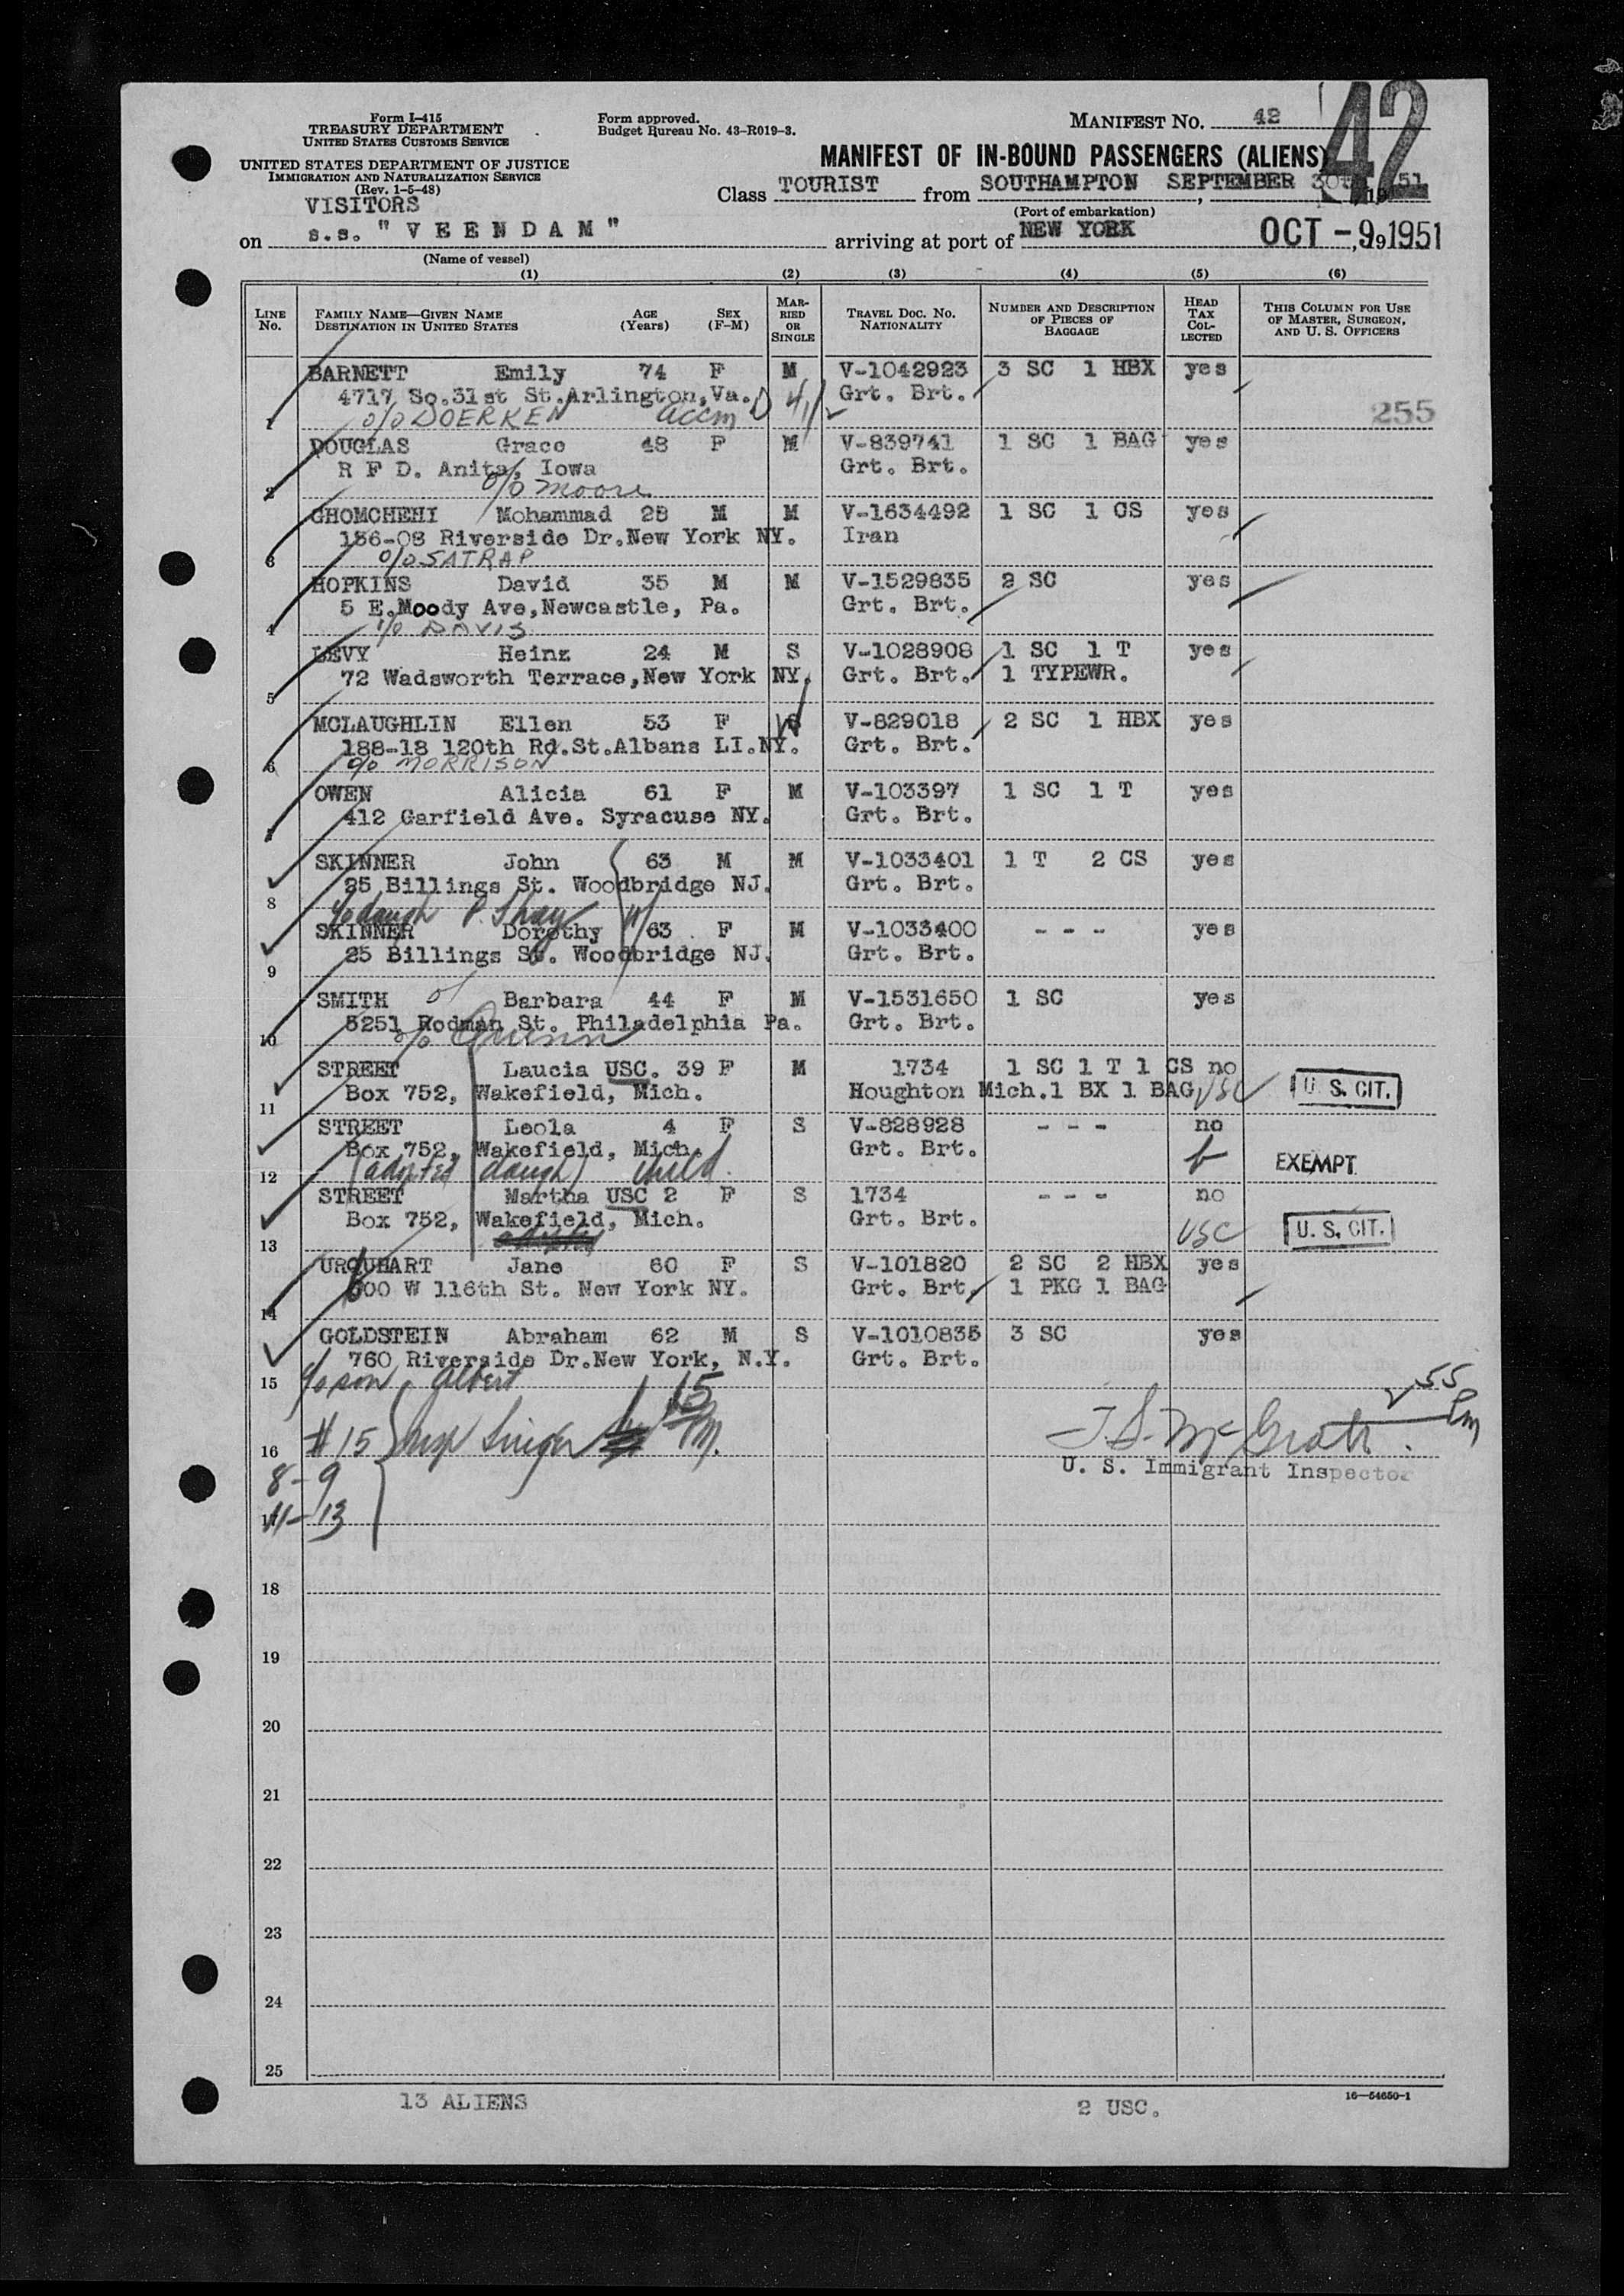 Form I-415
TREASURY DEPARTMENT
UNITED STATES CUSTOMS SERVICE
UNITED STATES DEPARTMENT OF JUSTICE
IMMIGRATION AND NATURALIZATION SERVICE
(Rev. 1-5-48)
VISITORS
Form approved.
Budget Bureau No. 43-R019-3.
MANIFEST NO. 42
42
MANIFEST OF IN-BOUND PASSENGERS (ALIENS)
Class TOURIST from SOUTHAMPTON SEPTEMBER 30th, 1951
(Port of embarkation)
on s.s. "VEENDAM" arriving at port of NEW YORK OCT -9 1951
(Name of vessel)
(1) (2) (3) (4) (5) (6)
LINE No.
FAMILY NAME—GIVEN NAME
DESTINATION IN UNITED STATES
AGE (Years)
SEX (F-M)
MARRIED OR SINGLE
TRAVEL DOC. NO. NATIONALITY
NUMBER AND DESCRIPTION OF PIECES OF BAGGAGE
HEAD TAX COLLECTED
THIS COLUMN FOR USE OF MASTER, SURGEON, AND U. S. OFFICERS
BARNETT Emily 74 F M V-1042923 3 SC 1 HBX yes
4717 So.31st St.Arlington,Va. Grt. Brt.
1 c/o DOERKEN accm D 4/2 255
DOUGLAS Grace 48 F M V-839741 1 SC 1 BAG yes
R F D. Anita, Iowa Grt. Brt.
2 c/o Moore
GHOMCHEHI Mohammad 28 M M V-1634492 1 SC 1 CS yes
156-08 Riverside Dr.New York NY. Iran
3 c/o SATRAP
HOPKINS David 35 M M V-1529835 2 SC yes
5 E.Moody Ave,Newcastle, Pa. Grt. Brt.
4 c/o DAVIS
LEVY Heinz 24 M S V-1028908 1 SC 1 T yes
72 Wadsworth Terrace,New York NY. Grt. Brt. 1 TYPEWR.
5
MCLAUGHLIN Ellen 53 F W V-829018 2 SC 1 HBX yes
188-18 120th Rd.St.Albans LI.NY. Grt. Brt.
6 c/o MORRISON
OWEN Alicia 61 F M V-103397 1 SC 1 T yes
412 Garfield Ave. Syracuse NY. Grt. Brt.
7
SKINNER John 63 M M V-1033401 1 T 2 CS yes
25 Billings St. Woodbridge NJ. Grt. Brt.
8 c/o daugh P. Shay
SKINNER Dorothy 63 F M V-1033400 - - - yes
25 Billings St. Woodbridge NJ. Grt. Brt.
9
SMITH Barbara 44 F M V-1531650 1 SC yes
5251 Rodman St. Philadelphia Pa. Grt. Brt.
10 c/o Quinn
STREET Laucia USC. 39 F M 1734 1 SC 1 T 1 CS no
Box 752, Wakefield, Mich. Houghton Mich.1 BX 1 BAG USC U. S. CIT.
11
STREET Leola 4 F S V-828928 - - - no
Box 752, Wakefield, Mich. Grt. Brt. EXEMPT
12 (adopted daugh) child.
STREET Martha USC 2 F S 1734 - - - no
Box 752, Wakefield, Mich. Grt. Brt. USC U. S. CIT.
13
URQUHART Jane 60 F S V-101820 2 SC 2 HBX yes
600 W 116th St. New York NY. Grt. Brt. 1 PKG 1 BAG
14
GOLDSTEIN Abraham 62 M S V-1010835 3 SC yes
760 Riverside Dr.New York, N.Y. Grt. Brt.
15 c/o son, Albert
16 #15 Insp Singer
8-9
17 11-13
255 Pm
T.S. McGrath.
U. S. Immigrant Inspector
18
19
20
21
22
23
24
25
13 ALIENS 2 USC.
16—54650-1